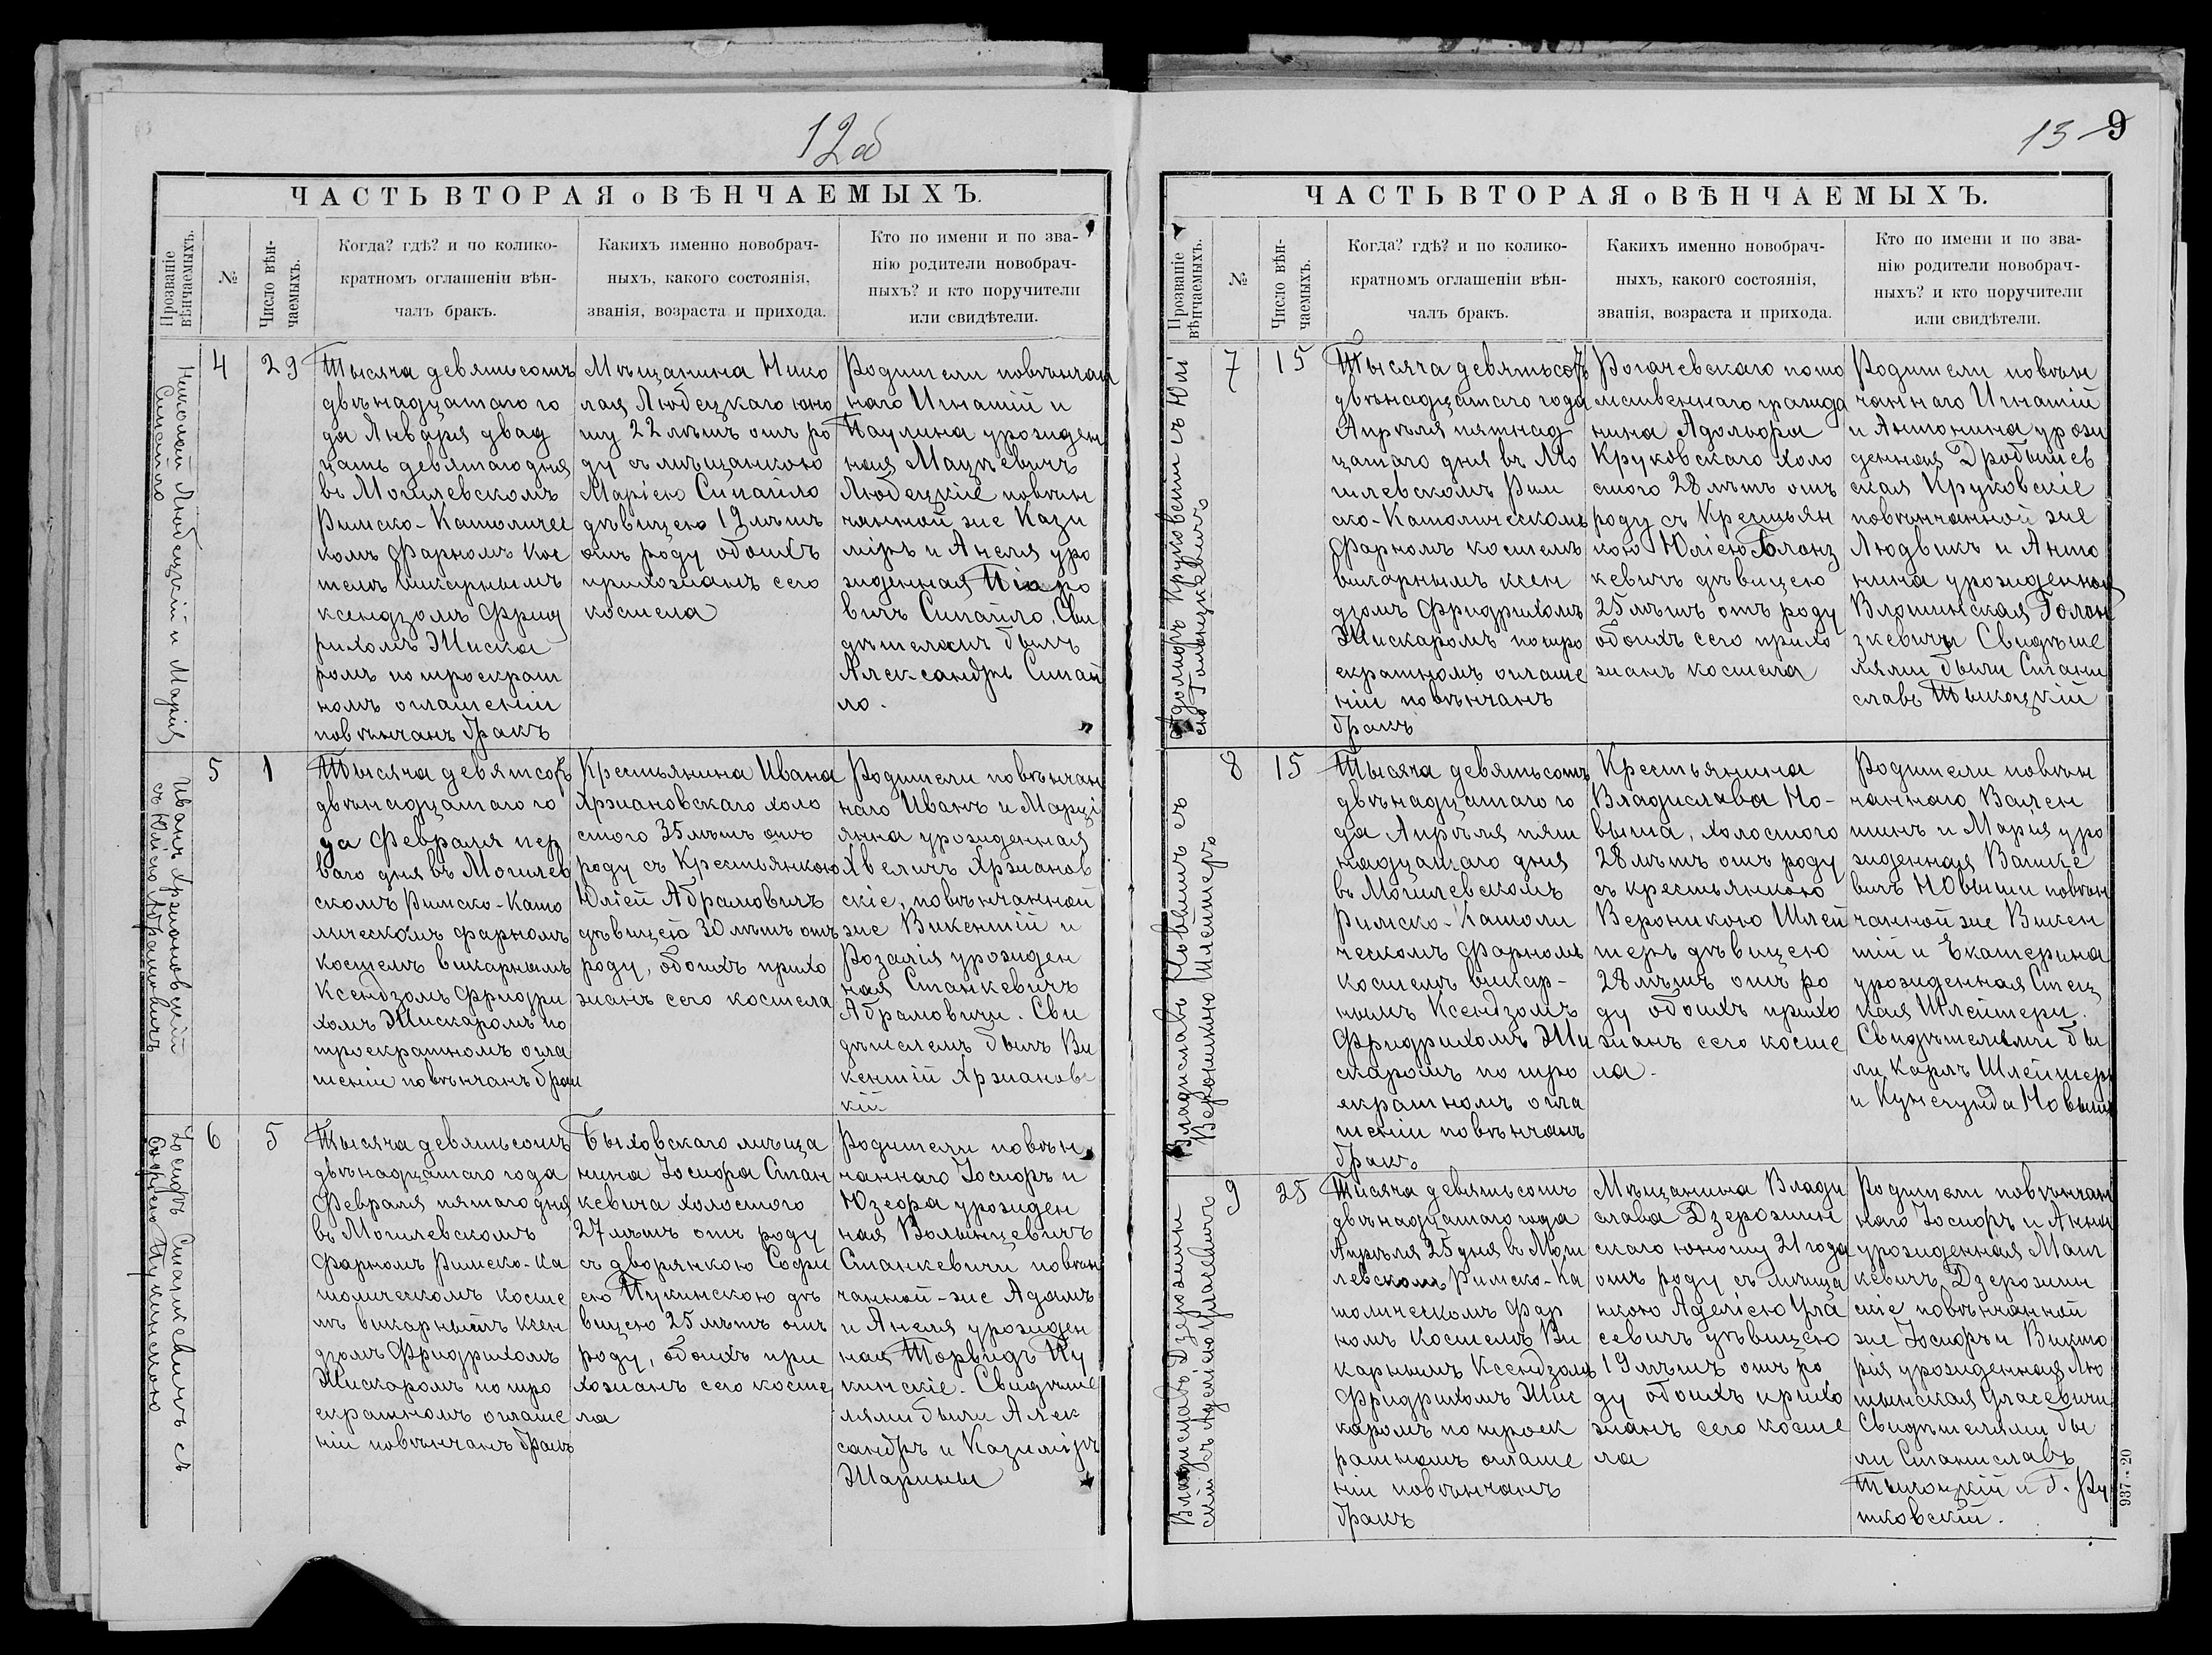 12об
ЧАСТЬ ВТОРАЯ о ВѢНЧАЕМЫХЪ.
Прозваніе
вѣнчаемыхъ.
№
Число вѣн-
чаемыхъ.
Когда? гдѣ? и по колико-
кратномъ оглашеніи вѣн-
чалъ бракъ.
Какихъ именно новобрач-
ныхъ, какого состоянія,
званія, возраста и прихода.
Кто по имени и по зва-
нію родители новобрач-
ныхъ? и кто поручители
или свидѣтели.
Николай Любецкій и Марія
Сипайло
4
29
Тысяча девятьсотъ
двѣнадцатаго го
да Января двад
цать девятаго дня
въ Могилевскомъ
Римско-Католичес
комъ Фарномъ Кос
телѣ викарнымъ
ксендзомъ Фрид
рихомъ Жиска
ромъ по троекрат
номъ оглашеніи
повѣнчанъ бракъ
Мѣщанина Нико
лая Любецкаго юно
шу 22 лѣтъ отъ ро
ду съ мѣщанкою
Маріею Сипайло
дѣвицею 19 лѣтъ
отъ роду обоихъ
прихожанъ сего
костела
Родители повѣнчан
наго Игнатій и
Паулина урожден
ная Мацкевичъ
Любецкіе повѣн
чанной же Кази
міръ и Анеля уро
жденная Піоро
вичъ Сипайло. Сви
дѣтелемъ былъ
Александръ Сипай
ло.
Иванъ Хржановскій
съ Юліею Абрамовичъ
5
1
Тысяча девятсотъ
двѣнадцатаго го
да Февраля пер
ваго дня въ Могилев
скомъ Римско-Като
лическомъ фарномъ
костелѣ викарнымъ
Ксендзомъ Фридри
хомъ Жискаромъ по
троекратномъ огла
шеніи повѣнчанъ брак
Крестьянина Ивана
Хржановскаго холо
стого 35 лѣтъ отъ
роду съ Крестьянкою
Юліей Абрамовичъ
дѣвицею 30 лѣтъ отъ
роду, обоихъ прихо
жанъ сего костела
Родители повѣнчан
наго Иванъ и Марці
янна урожденная
Хвеличъ Хржанов
скіе, повѣнчанной
же Викентій и
Розалія урожден
ная Станкевичъ
Абрамовичи. Сви
дѣтелемъ былъ Ви
кентій Хржановс
кій
Іосифъ Станкевичъ съ
Софіею Пукинскою
6
5
Тысяча девятьсотъ
двѣнадцатаго года
Февраля пятаго дня
въ Могилевскомъ
Фарномъ Римско-Ка
толическомъ косте
лѣ викарнымъ ксен
дзомъ Фридрихомъ
Жискаромъ по тро
екратномъ оглаше
ніи повѣнчанъ бракъ
Быховскаго мѣща
нина Іосифа Стан
кевича холостого
27 лѣтъ отъ роду
съ дворянкою Софи
ею Пукинскою дѣ
вицею 25 лѣтъ отъ
роду, обоихъ при
хожанъ сего косте
ла
Родители повѣн
чаннаго Іосифъ и
Юзефа урожден
ная Волынцевичъ
Станкевичи повѣн
чанной-же Адамъ
и Анеля урожден
ная Торвидъ Пу
кинскіе. Свидѣте
лями были Алек
сандръ и Казиміръ
Жарины
13
9
ЧАСТЬ ВТОРАЯ о ВѢНЧАЕМЫХЪ.
Прозваніе
вѣнчаемыхъ.
№
Число вѣн-
чаемыхъ.
Когда? гдѣ? и по колико-
кратномъ оглашеніи вѣн-
чалъ бракъ.
Какихъ именно новобрач-
ныхъ, какого состоянія,
званія, возраста и прихода.
Кто по имени и по зва-
нію родители новобрач-
ныхъ? и кто поручители
или свидѣтели.
Адольфъ Круковскій съ Юлі
ею Голонзкевичъ
7
15
Тысяча девятьсотъ
двѣнадцатаго года
Апрѣля пятнад
цатаго дня въ Мо
гилевскомъ Рим
ско-Католическомъ
Фарномъ костелѣ
викарнымъ ксен
дзомъ Фридрихомъ
Жискаромъ по тро
екратномъ оглаше
ніи повѣнчанъ
бракъ
Рогачевскаго пото
мственнаго гражда
нина Адольфа
Круковскаго холо
стого 28 лѣтъ отъ
роду съ Крестьян
кою Юліею Голонз
кевичъ дѣвицею
25 лѣтъ отъ роду
обоихъ сего прихо
жанъ костела
Родители повѣн
чаннаго Игнатій
и Антонина урож
денная Дробышев
ская Круковскіе
повѣнчанной же
Людвикъ и Анто
нина урожденная
Влошинская Голон
зкевичи Свидѣте
лями были Стани
славъ Тыкоцкій
Владиславъ Новышъ съ
Вероникою Шлейтеръ
8
15
Тысяча девятьсотъ
двѣнадцатаго го
да Апрѣля пят
надцатаго дня
въ Могилевскомъ
Римско-Католи
ческомъ Фарномъ
Костелѣ викар-
нымъ Ксендзомъ
Фридрихомъ Жи
скаромъ по тро
екратномъ огла
шеніи повѣнчанъ
бракъ
Крестьянина
Владислава Но-
выша, холостого
28 лѣтъ отъ роду
съ крестьянкою
Вероникою Шлей
теръ дѣвицею
28 лѣтъ отъ ро
ду обоихъ прихо
жанъ сего косте
ла.
Родители повѣн
чаннаго Вален
тинъ и Марія уро
жденная Вашке
вичъ Новыши повѣн
чанной же Викен
тій и Екатерина
урожденная Стец
кая Шлейтеры.
Свидѣтелями бы
ли Карлъ Шлейтеръ
и Кунегунда Новышъ
Владиславъ Дзержин
скій съ Аделіею Уласевичъ
9
25
Тысяча девятьсотъ
двѣнадцатаго года
Апрѣля 25 дня въ Моги
левскомъ Римско-Ка
толическомъ Фар
номъ Костелѣ Ви
карнымъ Ксендзомъ
Фридрихомъ Жис
каромъ по троек
ратномъ оглаше
ніи повѣнчанъ
бракъ
Мѣщанина Влади
слава Дзержин
скаго юношу 21 года
отъ роду съ мѣща
нкою Аделіею Ула
севичъ дѣвицею
19 лѣтъ отъ ро
ду обоихъ прихо
жанъ сего косте
ла
Родители повѣнчан
наго Іосифъ и Анна
урожденная Мац
кевичъ Дзержин
скіе повѣнчанной
же Іосифъ и Викто
рія урожденная Лю
тынская Уласевичи
Свидѣтелями бы
ли Станиславъ
Тыкоцкій и Г. Ру
тковскій.
937-20